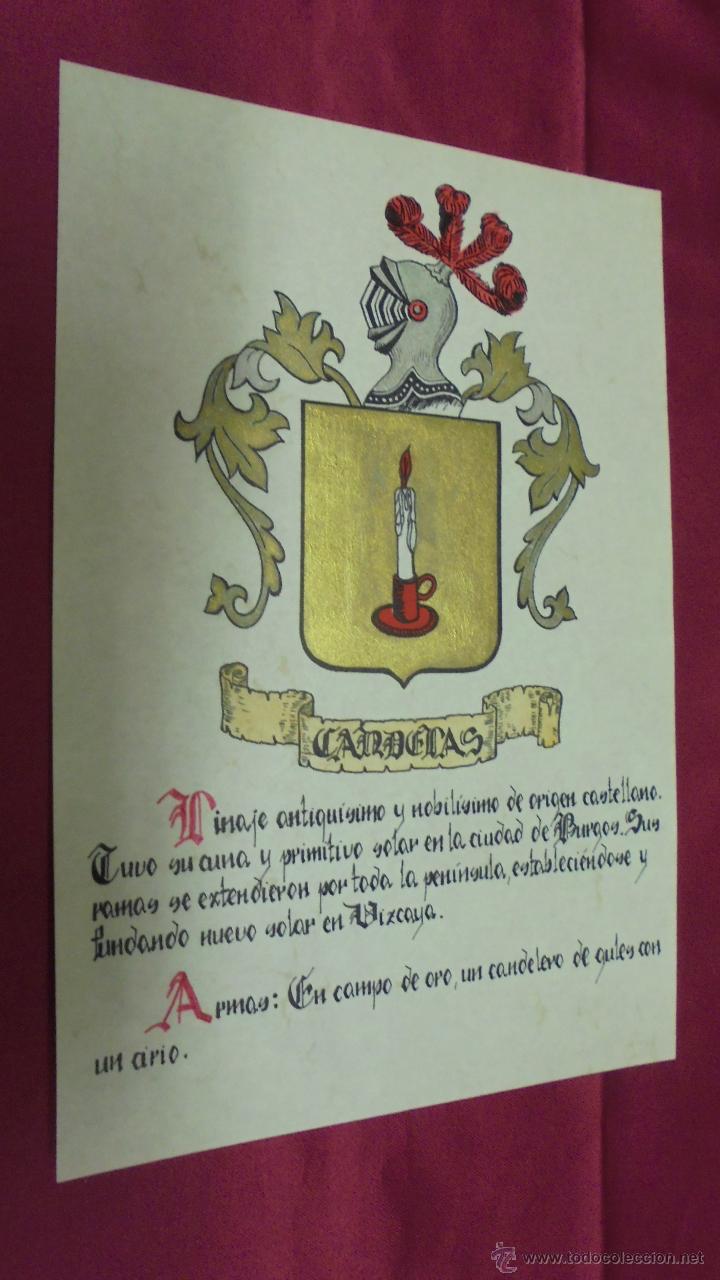 CANDELAS
Linaje antiquísimo y nobilísimo de origen castellano.
Tuvo su cuna y primitivo solar en la ciudad de Burgos. Sus
ramas se extendieron por toda la península, estableciéndose y
fundando nuevo solar en Vizcaya.
Armas: En campo de oro, un candelero de gules con
un cirio.
www.todocoleccion.net